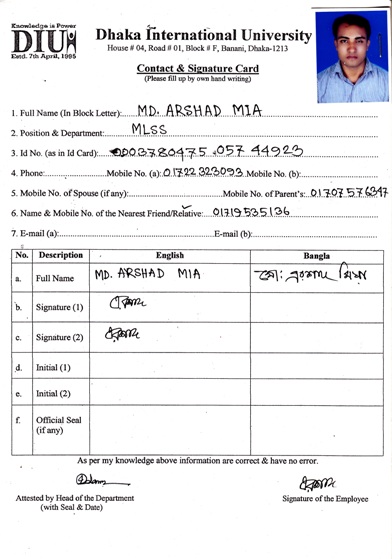 Knowledge is Power
DIU
Estd. 7th April, 1995
Dhaka International University
House # 04, Road # 01, Block # F, Banani, Dhaka-1213
Contact & Signature Card
(Please fill up by own hand writing)
1. Full Name (In Block Letter): MD. ARSHAD MIA
2. Position & Department: MLSS
3. Id No. (as in Id Card): 0003780475 057 44923
4. Phone: Mobile No. (a): 01722323093 Mobile No. (b):
5. Mobile No. of Spouse (if any): Mobile No. of Parent's: 01707576347
6. Name & Mobile No. of the Nearest Friend/Relative: 01719535136
7. E-mail (a): E-mail (b):
No. Description English Bangla
a. Full Name MD. ARSHAD MIA মো: এরশাদ মিয়া
b. Signature (1)
c. Signature (2)
d. Initial (1)
e. Initial (2)
f. Official Seal (if any)
As per my knowledge above information are correct & have no error.
Attested by Head of the Department Signature of the Employee
(with Seal & Date)